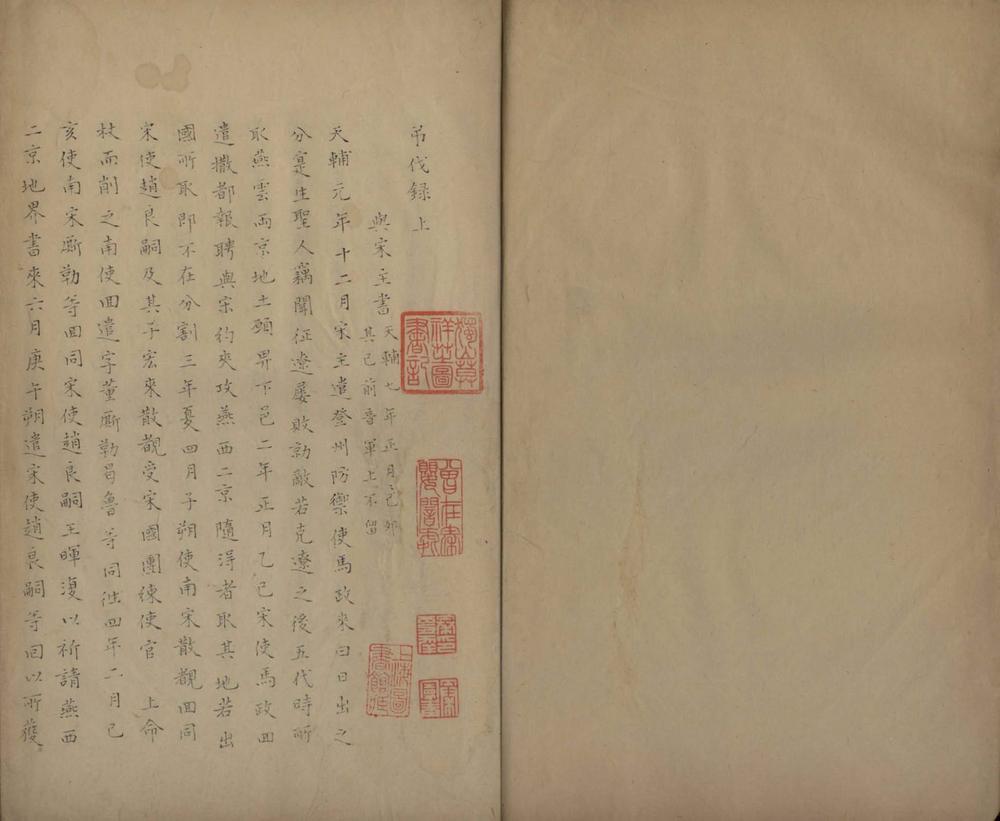 弔伐録上
與宋主書天輔七年正月己卯
其已前書軍上不留
天輔元年十二月宋主遣登州防禦使馬政来曰日出之
分寔生聖人竊聞征遼屡敗勍敵若克遼之後五代時所
取燕雲兩京地土願畀下邑二年正月乙巳宋使馬政回
遣撒都報聘與宋約夾攻燕西二京隨得者取其地若出
國所取即不在分割三年夏四月子朔使南宋散覩回同
宋使趙良嗣及其子宏來散覩受宋國團練使官 上命
杖而削之南使回遣孛菫厮勒曷魯等同徃四年二月己
亥使南宋厮勒等回同宋使趙良嗣王暉復以祈請燕西
二京地界書來六月庚午朔遣宋使趙良嗣等回以所獲
獨山莫
祥芝圖
書記
曾在秦
嬰闇處
上海圖
書館藏